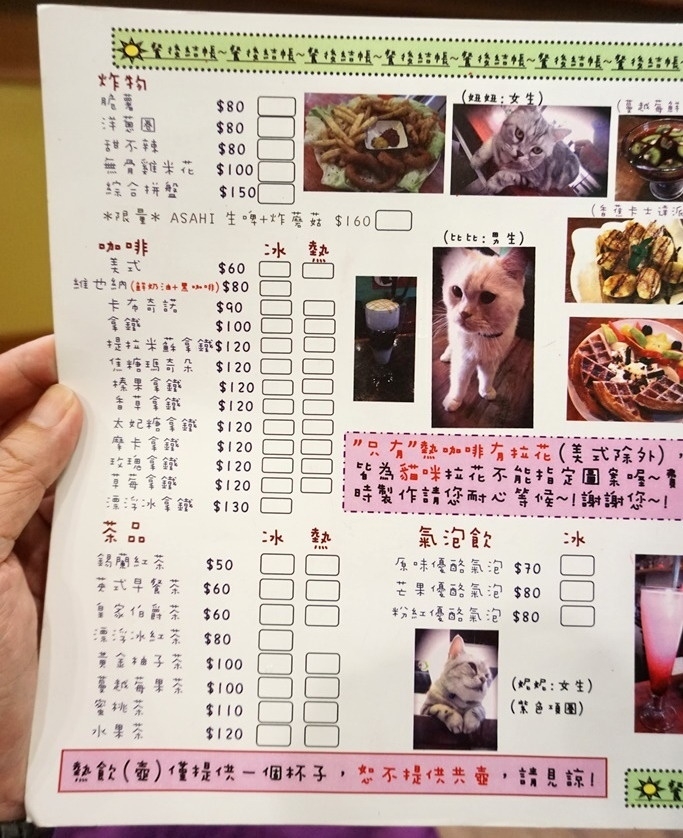 餐後結帳~餐後結帳~餐後結帳~餐後結帳~餐後結帳~餐後結帳~餐後結
炸物
脆薯 $80
洋蔥圈 $80
甜不辣 $80
無骨雞米花 $100
綜合拼盤 $150
*限量* ASAHI 生啤+炸蘑菇 $160
(妞妞:女生)
(蔓越莓鮮
(香蕉卡士達派
(比比:男生)
咖啡 冰 熱
美式 $60
維也納(鮮奶油+黑咖啡) $80
卡布奇諾 $90
拿鐵 $100
提拉米蘇拿鐵 $120
焦糖瑪奇朵 $120
榛果拿鐵 $120
香草拿鐵 $120
太妃糖拿鐵 $120
摩卡拿鐵 $120
玫瑰拿鐵 $120
草莓拿鐵 $120
漂浮冰拿鐵 $130
"只有"熱咖啡有拉花(美式除外),
皆為貓咪拉花不能指定圖案喔~費
時製作請您耐心等候~!謝謝您~!
茶品 冰 熱
錫蘭紅茶 $50
英式早餐茶 $60
皇家伯爵茶 $60
漂浮冰紅茶 $80
黃金柚子茶 $100
蔓越莓果茶 $100
蜜桃茶 $110
水果茶 $120
氣泡飲 冰
原味優酪氣泡 $70
芒果優酪氣泡 $80
粉紅優酪氣泡 $80
(妮妮:女生)
(紫色項圈)
熱飲(壺)僅提供一個杯子,恕不提供共壺,請見諒!
餐